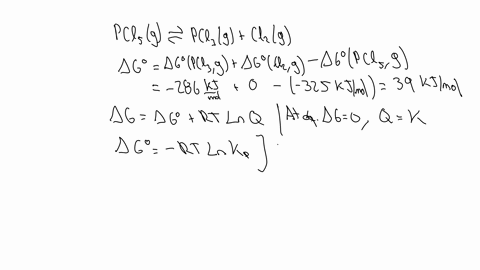 PCl₅(g) ⇌ PCl₃(g) + Cl₂(g)
ΔG° = ΔG°(PCl₃,g) + ΔG°(Cl₂,g) − ΔG°(PCl₅,g)
= −286 kJ/mol + 0 − (−325 kJ/mol) = 39 kJ/mol
ΔG = ΔG° + RT Ln Q | At eq. ΔG=0, Q = K
ΔG° = −RT Ln Kₚ ]